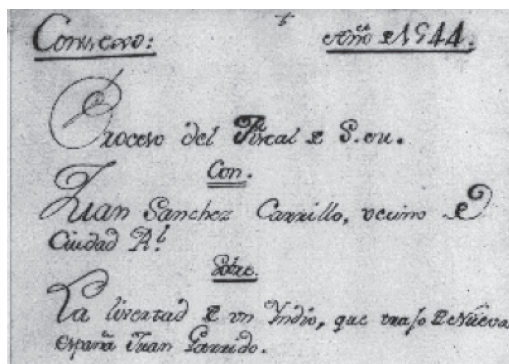 Consexo: Año de 1544.
Proceso del Fiscal de S. M.
Con.
Juan Sanchez Carrillo, vecino de
Ciudad Rl.
Sobre.
La livertad de un Yndio, que traxo de Nueva
España Juan Garrido.